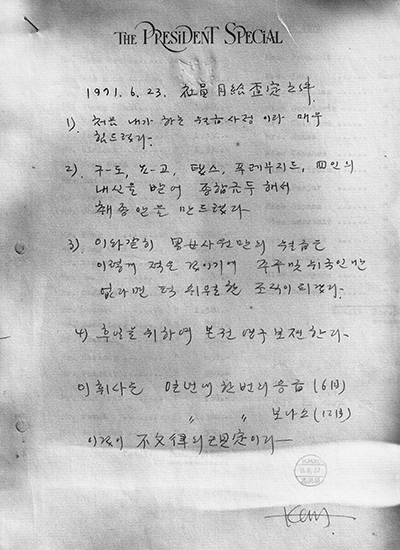 THE PRESIDENT SPECIAL
1971. 6. 23. 社員月給査定之件
1). 처음 내가 하는 월급사정 이라 매우
힘드렀다.
2). 구-도, 쏘-고, 탭스, 四人의
내신을 받어 종합검투 해서
최종안을 만드렀다
3) 이와같히 男女사원만의 월급을
이렇게 적은 것이기에 주주및 외국인
없다면 퍽 조직이 되겠다.
4) 후일을 위하여 본건 영구 보전한다.
이 회사는 일년내 한번의 승급 (6月)
〃 〃 보나스 (12月)
이것이 不文律의 規定이라
Kem